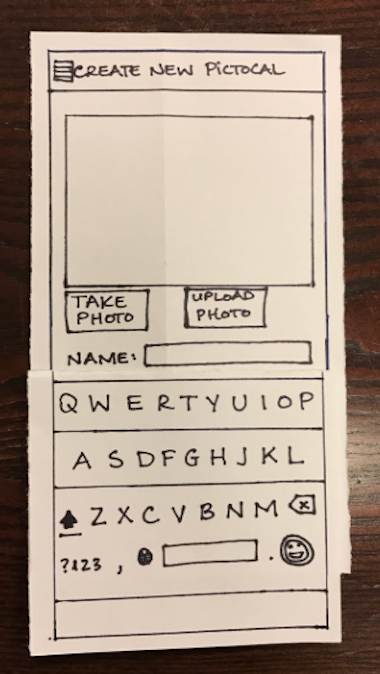 CREATE NEW PICTOCAL
TAKE PHOTO
UPLOAD PHOTO
NAME:
Q W E R T Y U I O P
A S D F G H J K L
Z X C V B N M
?123 , .